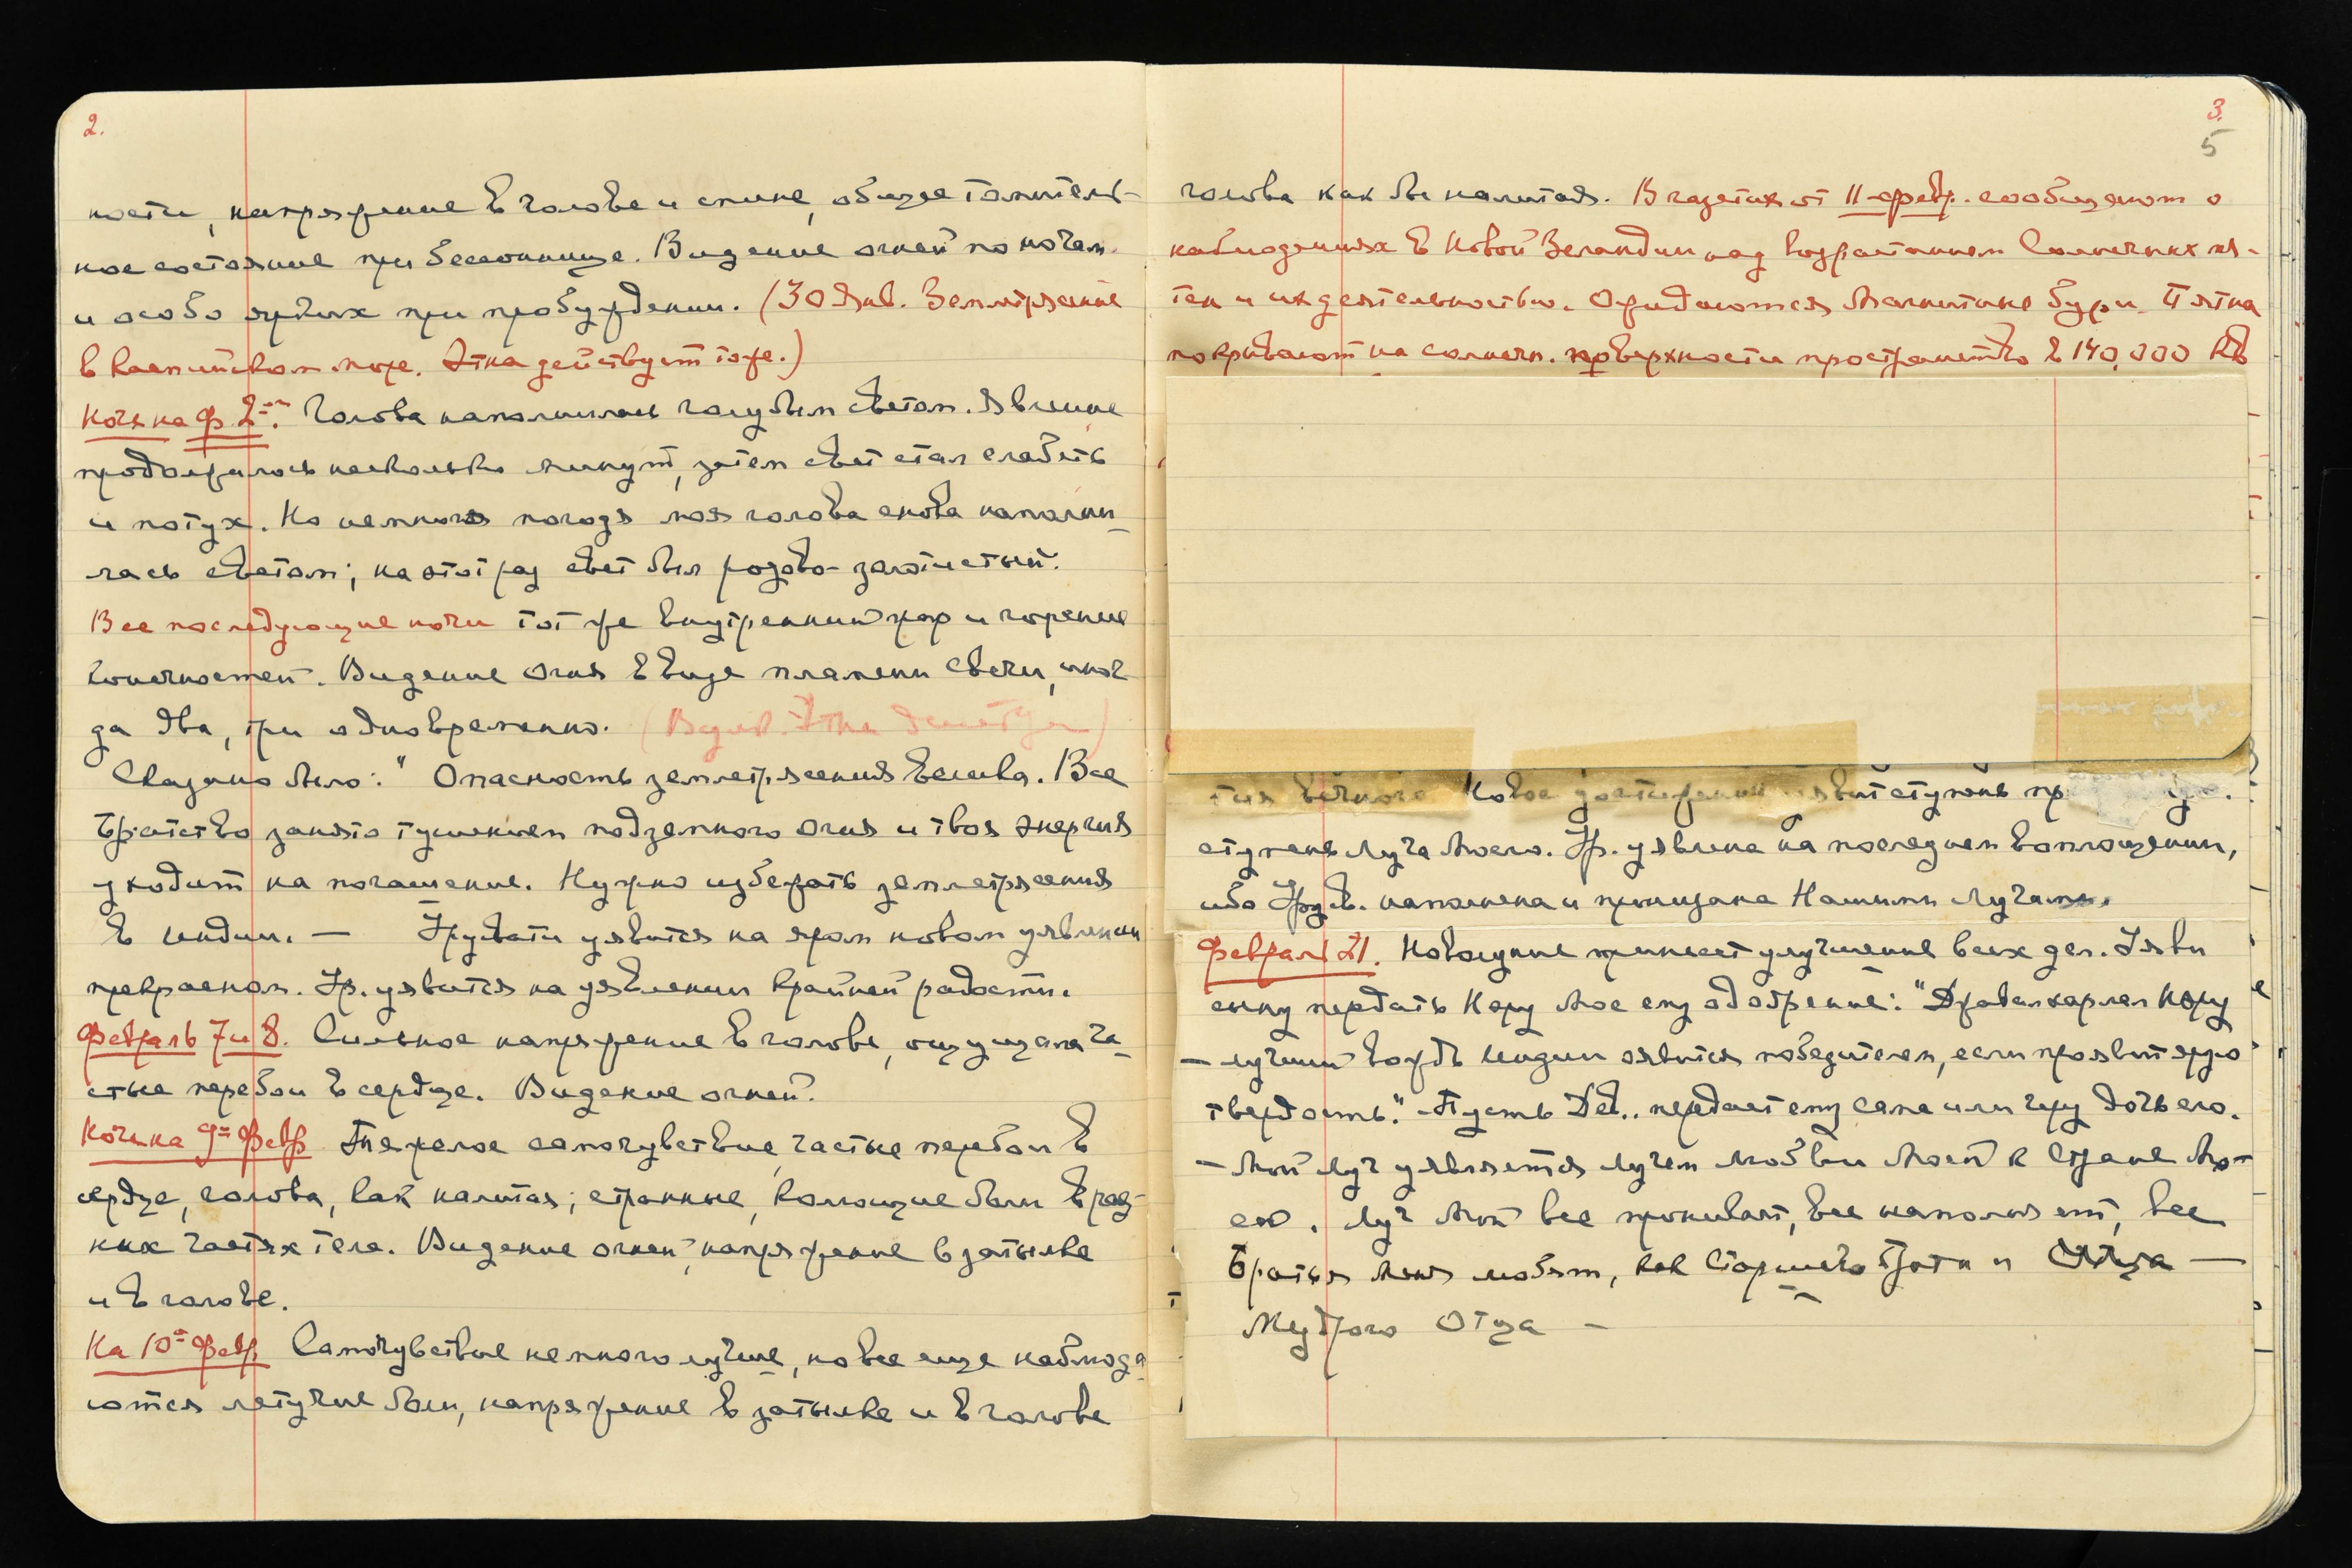 2.
ности, напряжение в голове и спине, общее томитель-
ное состояние при бессоннице. Видение огней по ночам
и особо ярких при пробуждении. (30 Янв. Землетрясение
в Каспийском море. Этна действует тоже.)
Ночь на Ф 2ое. Голова наполнилась голубым светом. Явление
продолжалось несколько минут, затем свет стал слабеть
и потух. Но немного погодя моя голова снова наполни-
лась светом; на этот раз свет был розово-золотистый.
Все последующие ночи тот же внутренний жар и горение
конечностей. Видение огня в виде пламени свечи, иног-
да два, три одновременно. (Этна
Сказано было: "Опасность землетрясения велика. Все
Братство занято тушением подземного огня и твоя энергия
уходит на погашение. Нужно избежать землетрясения
в Индии. — Урувати уявится на яром новом уявлении
прекрасном. Ур. уявится на уявлении крайней радости.
Февраль 7 и 8. Сильное напряжение в голове, ощущала ча-
стые перебои в сердце. Видение огней.
Ночь на 9ое Февр Тяжелое самочувствие, частые перебои в
сердце, голова, как налитая; странные, колющие боли в раз-
ных частях тела. Видение огней, напряжение в затылке
и в голове.
На 10ое Февр Самочувствие немного лучше, но все еще наблюда-
ются летучие боли, напряжение в затылке и в голове
3.
5
голова как бы налитая. В газетах от 11 февр. сообщают о
наблюдениях в Новой Зеландии над возрастанием Солнечных пя-
тен и их деятельностью. Ожидаются Магнитные бури. Пятна
покрывают на солнечн. поверхности пространство в 140,000 кв
тия вечного Новое достижение явит ступень
ступень Луча Моего. Ур. уявлена на последнем воплощении,
ибо Ур. наполнена и пронизана Нашими Лучами.
Февраль 21. Новолуние принесет улучшение всех дел. Уяви
сыну передать Неру Мое ему одобрение: "Джавахарлал Неру
— лучший вождь Индии явится победителем, если проявит ярую
твердость." — Пусть Дев.. передает ему сама или через дочь его.
— Мой Луч уявляется Лучем Любви Моей к Стране Мо-
ею. Луч Мой все проникает, все наполняет, все
Братья Меня любят, как Старшего Брата и Отца —
Мудрого Отца —